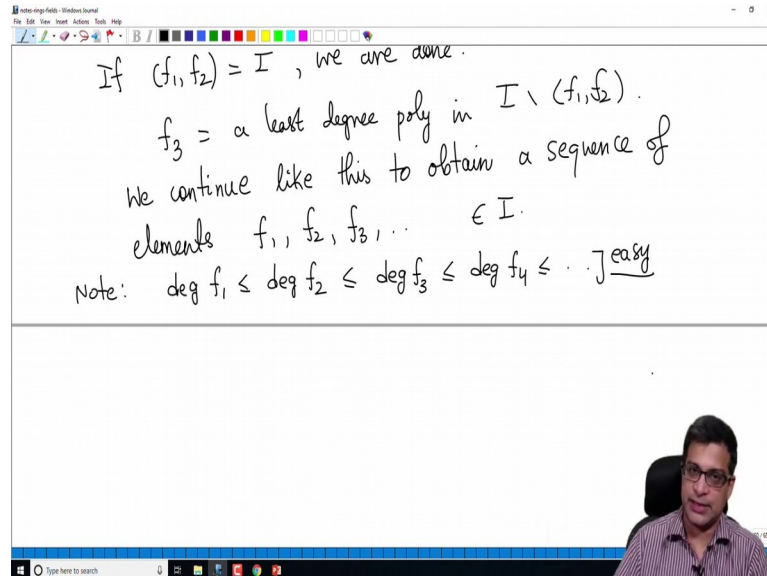 notes-rings-fields - Windows Journal
File Edit View Insert Actions Tools Help
B I
If (f₁, f₂) = I , we are done.
f₃ = a least degree poly in I \ (f₁, f₂) .
We continue like this to obtain a sequence of
elements f₁, f₂, f₃, .. ∈ I.
Note: deg f₁ ≤ deg f₂ ≤ deg f₃ ≤ deg f₄ ≤ . . ] easy
Type here to search